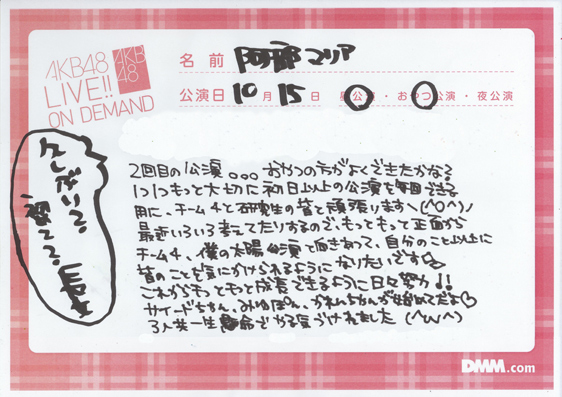 AKB48
LIVE!!
ON DEMAND
AKB
48
名前 阿部マリア
公演日 10月 15日 昼公演・おやつ公演・夜公演
2回目の公演。。。おやつの方がよくできたかなる
1つ1つもっと大切に初日以上の公演を毎回できる
用に、チーム4と研究生の皆と頑張ります\(^O^)/
最近いろいろ考えてたりするので、もっともっと正面から
チーム4、僕の太陽公演と向きあって、自分のこと以上に
皆のことを気にかけられるようになりたいです
これからもっともっと成長できるように日々努力!!
サイードちゃん、みゆぽん、かれんちゃんが始めてだよ♡
3人共一生懸命でやる気づけられました (^ω^)
DMM.com